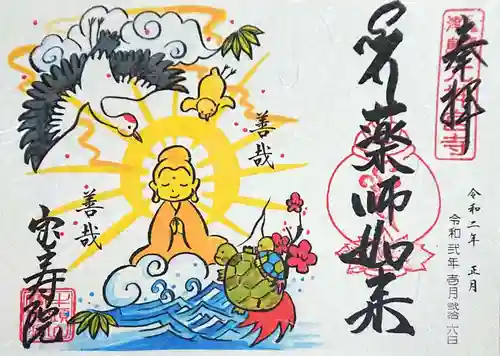 奉拝
令和二年 正月
令和 弐年 壱月 弐拾 六日
薬師如来
善哉
善哉
宝寿院